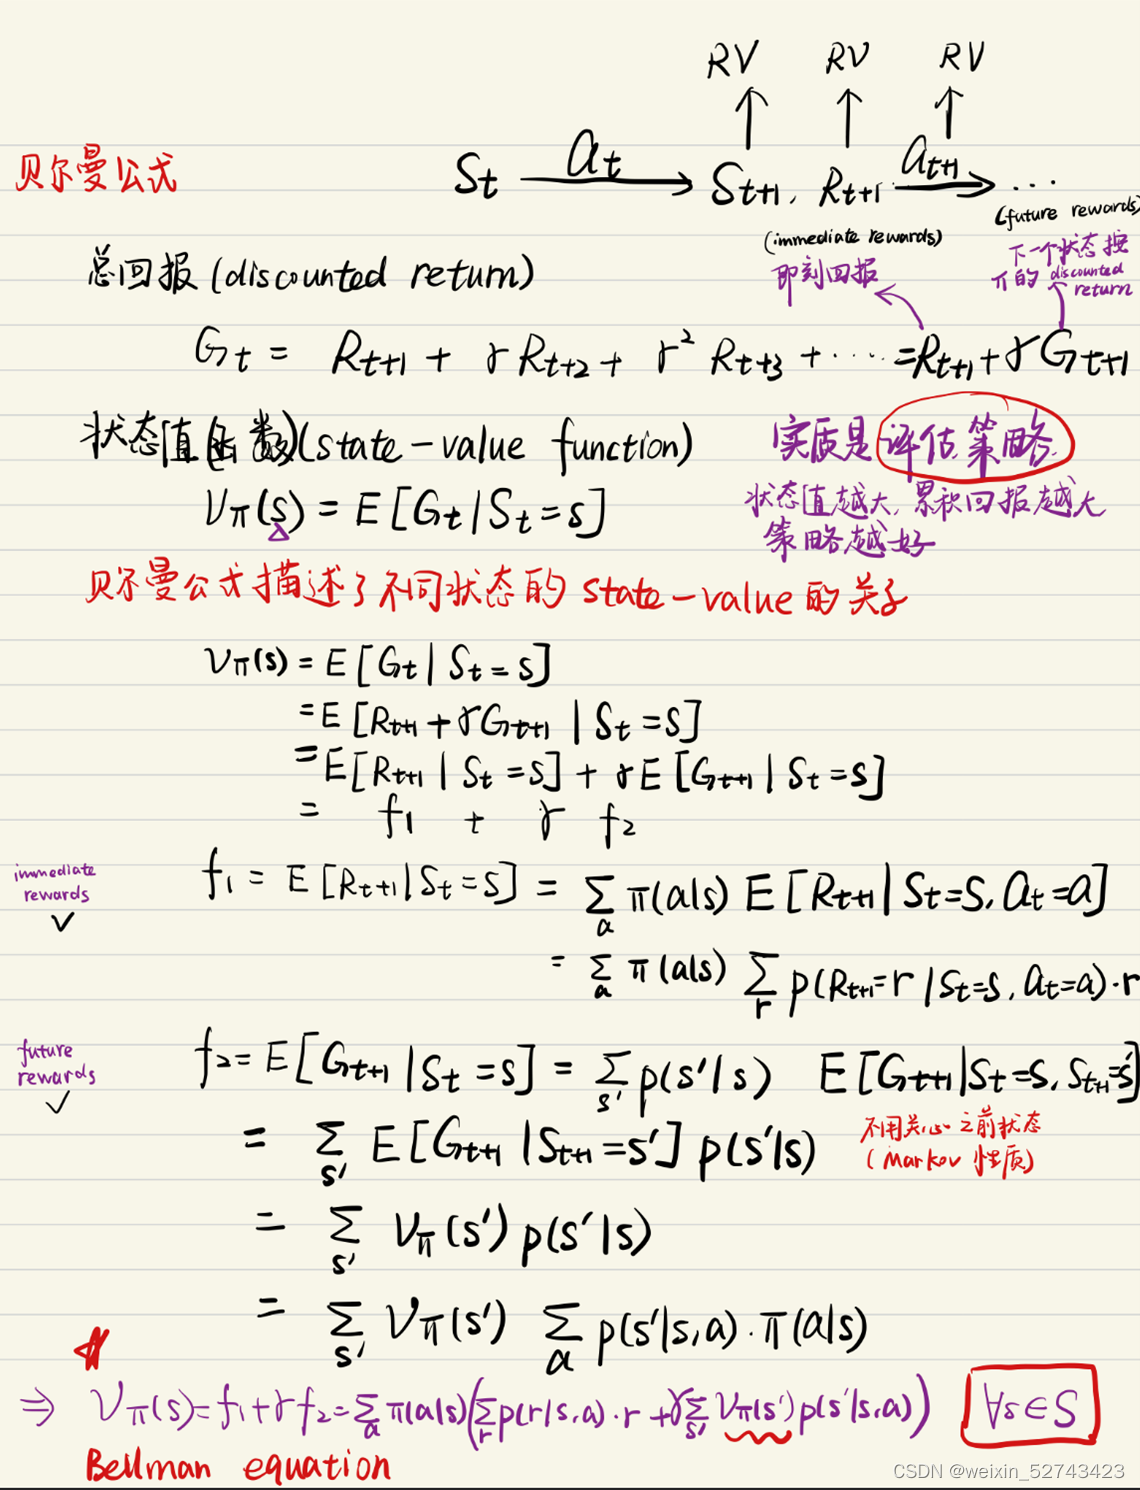 RV RV RV
贝尔曼公式
St at→ St+1, Rt+1 at+1→ ...
(immediate rewards) (future rewards)
即刻回报
下一个状态按
π的 discounted
return
总回报 (discounted return)
Gt = Rt+1 + γRt+2 + γ² Rt+3 + ····· = Rt+1 + γGt+1
状态值(函数)(state-value function)
实质是评估策略
Vπ(s) = E[Gt|St=s]
状态值越大,累积回报越大
策略越好
贝尔曼公式描述了不同状态的 state-value 的关系
Vπ(s) = E[Gt|St=s]
= E[Rt+1+γGt+1 | St=s]
= E[Rt+1 | St=s] + γE[Gt+1 | St=s]
= f1 + γ f2
immediate
rewards
✓
f1 = E[Rt+1|St=s] = Σa π(a|s) E[Rt+1|St=s, at=a]
= Σa π(a|s) Σr p(Rt+1=r |St=s, at=a)·r
future
rewards
✓
f2 = E[Gt+1 |St=s] = Σs' p(s'|s) E[Gt+1|St=s, St+1=s']
= Σs' E[Gt+1 |St+1=s'] p(s'|s)
不用关心之前状态
(Markov 性质)
= Σs' Vπ(s') p(s'|s)
= Σs' Vπ(s') Σa p(s'|s,a)·π(a|s)
⇒ Vπ(s)=f1+γf2=Σa π(a|s)(Σr p(r|s,a)·r+γΣs' Vπ(s')p(s'|s,a)) ∀s∈S
Bellman equation
CSDN @weixin_52743423